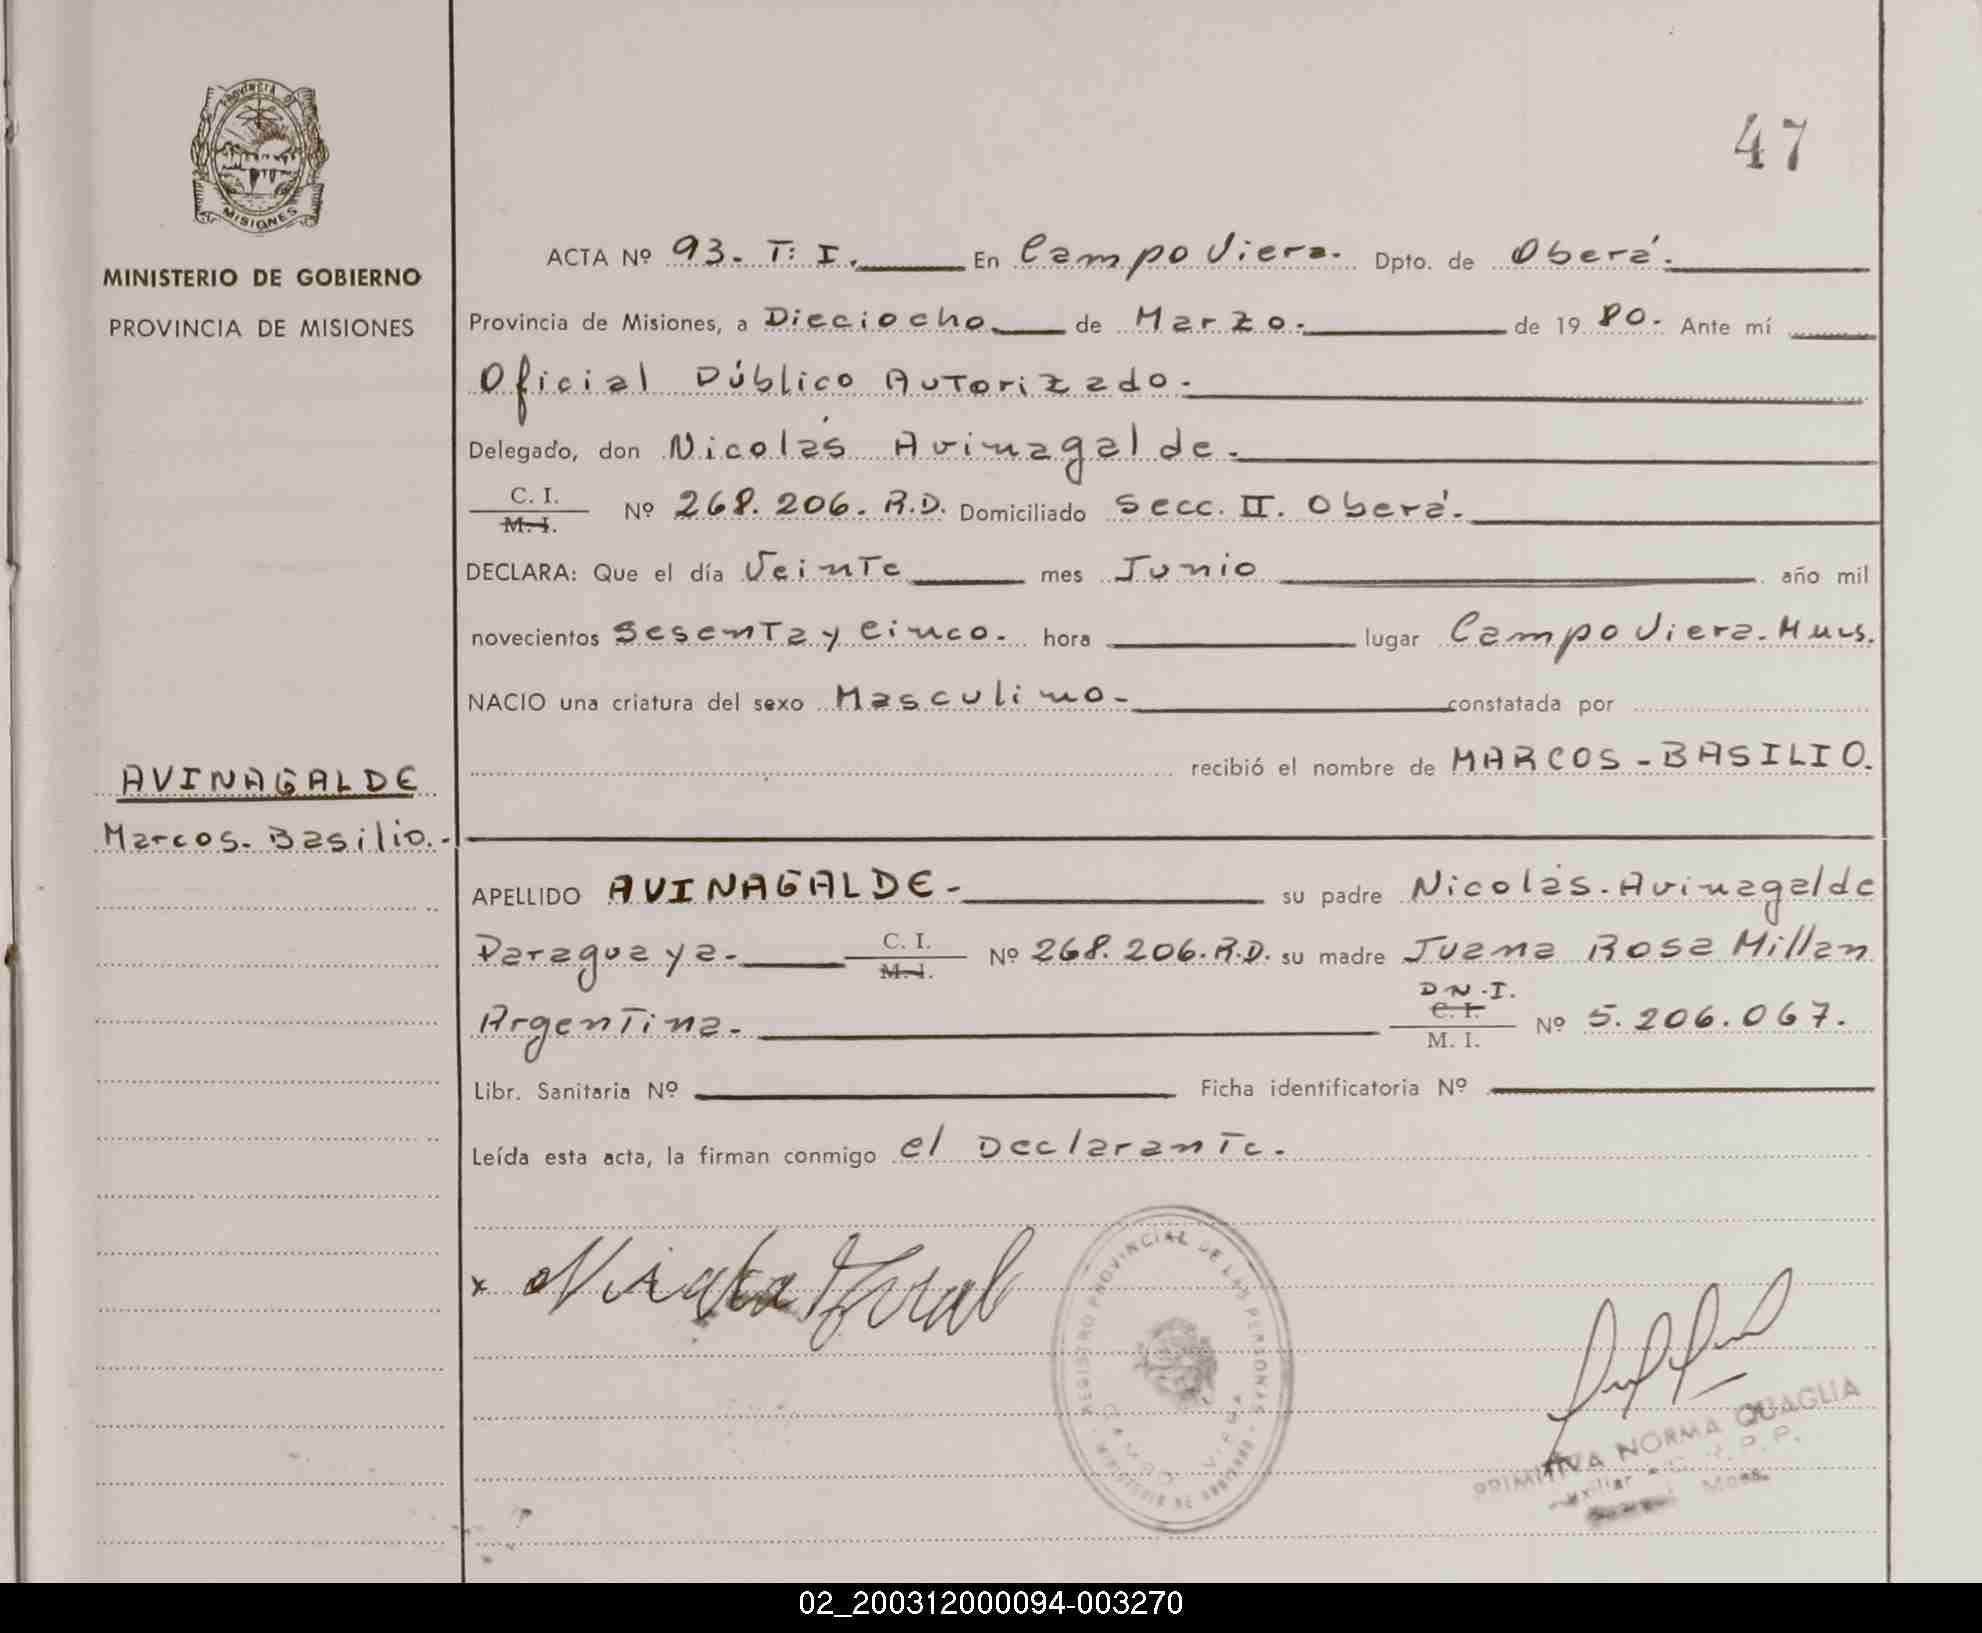 PROVINCIA DE
MISIONES
MINISTERIO DE GOBIERNO
PROVINCIA DE MISIONES
47
ACTA Nº 93. T: I. En Campo Viera. Dpto. de Oberá.
Provincia de Misiones, a Dieciocho de Marzo. de 19 80. Ante mí
Oficial Público Autorizado.
Delegado, don Nicolás Avinagalde.
C. I.
M. I.
Nº 268.206. R.D. Domiciliado Secc. II. Oberá.
DECLARA: Que el día Veinte mes Junio año mil
novecientos Sesenta y Cinco. hora lugar Campo Viera. Mnes.
NACIO una criatura del sexo Masculino- constatada por
recibió el nombre de MARCOS-BASILIO.
AVINAGALDE
Marcos. Basilio.-
APELLIDO AVINAGALDE- su padre Nicolás. Avinagalde
Paraguaya- C. I. Nº 268.206. R.D. su madre Juana Rosa Millan
M. I.
D N.I.
Argentina. C. I. Nº 5.206.067.
M. I.
Libr. Sanitaria Nº Ficha identificatoria Nº
Leída esta acta, la firman conmigo el Declarante.
x
REGISTRO PROVINCIAL DE LAS PERSONAS
CAMPO VIERA
MINISTERIO DE GOBIERNO
PRIMITIVA NORMA QUAGLIA
Auxiliar
Mnes.
02_200312000094-003270